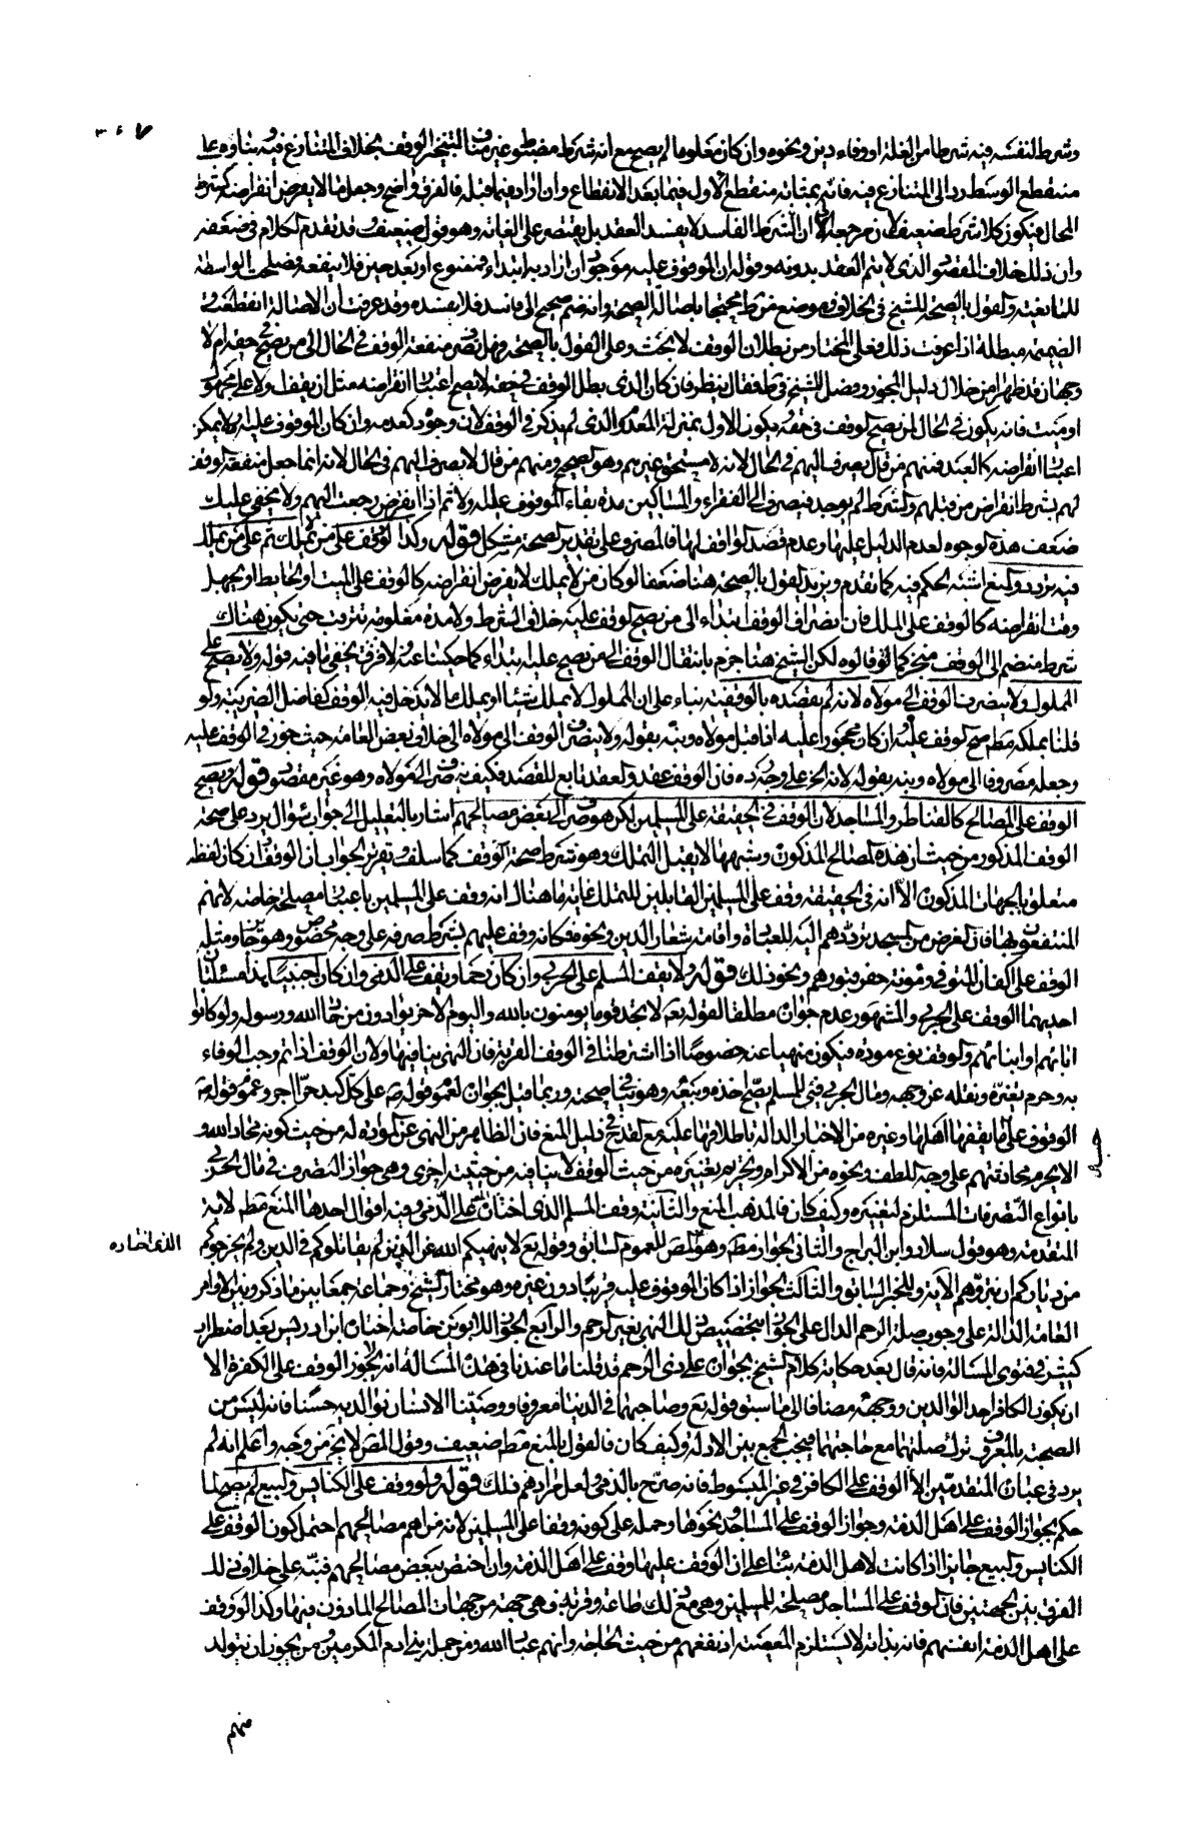 وشرط لنفسه فيه شرطا من الغلة او وفاء دين ونحوه وان كان معلوما لم يصح مع انه شرط مضبوط غير مناف لتنجيز الوقف بخلاف المتنازع فيه وبناؤه على
منقطع الوسط رد الى المتنازع فيه فانه بمثابة منقطع الاول فيما بعد الانقطاع وان اراد فيما قبله فالفرق واضح وجعل ما لا يفرض انقراضه كشرط
المحال فيكون كلا شرط ضعيف لان مرجعه الى ان الشرط الفاسد لا يفسد العقد بل يقتصر على الغاية وهو قول ضعيف وقد تقدم الكلام في ضعفه
وان ذلك خلاف المقصود الذي لا يتم العقد بدونه وقوله ان الموقوف عليه موجود ان اراد به ابتداء فممنوع او بعد حين فلا ينفعه
للتابعية والقول بالصحة للشيخ في الخلاف وموضع من ط محتجا باصالة الصحة وانه ضم صحيح الى فاسد فلا يفسده وقد عرفت ان الاصالة انقطعت
الضميمة مبطلة اذا عرفت ذلك فعلى المختار من بطلان الوقف لا بحث وعلى القول بالصحة فهل تصرف منفعة الوقف في الحال الى من يصح في حقه ام لا
وجهان قد ظهرا من خلال دليل المجوز وفصل الشيخ في ط فقال ينظر فان كان الذي بطل الوقف في حقه لا يصح اعتبار انقراضه مثل ان يقف ولا على مجهول
او ميت فانه يكون في الحال لمن يصح الوقف في حقه ويكون الاول بمنزلة المعدوم الذي لم يذكر في الوقف لان وجوده كعدمه وان كان الموقوف عليه اولا يمكن
اعتبار انقراضه كالعبد فمنهم من قال يصرف اليهم في الحال لانه لا مستحق غيرهم وهو الصحيح ومنهم من قال لا يصرف اليهم في الحال لانه انما جعل منفعة الوقف
لهم بشرط انقراض من قبلهم والشرط لم يوجد فيصرف الى الفقراء والمساكين مدة بقاء الموقوف عليه اولا ثم اذا انقرض رجعت اليهم ولا يخفى عليك
ضعف هذه الوجوه لعدم الدليل عليها وعدم قصد الواقف لها فالمصرف على تقدير الصحة مشكل قوله وكذا لو وقف على من لا يملك ثم على من يملك
فيه تردد والمنع اشبه الحكم فيه كما تقدم ويزيد القول بالصحة هنا ضعفا لو كان من لا يملك لا يفرض انقراضه كالوقف على الميت او الحايط او يجهل
وقت انقراضه كالوقف على الملك فان انصراف الوقف ابتداء الى من يصح الوقف عليه خلاف الشرط ولا مدة معلومة تترقب حتى يكون هناك
شرط منضم الى الوقف منجز كما قالوه لكن الشيخ هنا جزم بانتقال الوقف الى من يصح عليه ابتداء كما حكينا عنه ولا فرق يخفى ما فيه قوله ولا يصح على
المملوك ولا ينصرف الوقف الى مولاه لانه لم يقصده بالوقفية بناء على ان المملوك لا يملك شيئا او يملك ما لا يدخل فيه الوقف كفاضل الضريبة ولو
قلنا بملكه مط صح الوقف عليه وان كان محجورا عليه اذا قبل مولاه ونبه بقوله ولا ينصرف الوقف الى مولاه الى خلاف بعض العامة حيث جوز الوقف عليه
وجعله مصروفا الى مولاه ونبه بقوله لانه الخ على وجه رده فان الوقف عقد والعقد تابع للقصد فكيف يصرف الى مولاه وهو غير مقصود قوله ويصح
الوقف على المصالح كالقناطر والمساجد لان الوقف في الحقيقة على المسلمين لكن هو صرف الى بعض مصالحهم اشار بالتعليل الى جواب سؤال يرد على صحة
الوقف المذكور من حيث ان هذه المصالح المذكورة وشبهها لا يقبل التملك وهو شرط صحة الوقف كما سلف وتقرير الجواب ان الوقف وان كان لفظه
متعلقا بالجهات المذكورة الا انه في الحقيقة وقف على المسلمين القابلين للتملك غاية ما هناك انه وقف على المسلمين باعتبار مصلحة خاصة لانهم
المنتفعون بها فان الغرض من المسجد ترددهم اليه للعبادة واقامة شعار الدين ونحوه فكانه وقف عليهم بشرط صرفه على وجه مخصوص وهو جايز ومثله
الوقف على اكفان الموتى ومؤنة حفر قبورهم ونحو ذلك قوله ولا يقف المسلم على الحربي وان كان رحما ويقف على الذمي وان كان اجنبيا هنا مسئلتان
احديهما الوقف على الحربي والمشهور عدم جوازه مطلقا لقوله تع لا تجد قوما يومنون بالله واليوم الاخر يوادون من حاد الله ورسوله ولو كانوا
اباءهم او ابناءهم والوقف نوع مودة فيكون منهيا عنه خصوصا اذا اشترطنا في الوقف القربة فان النهي ينافيها ولان الوقف اذا تم وجب الوفاء
به وحرم تغييره ونقله عن وجهه ومال الحربي فيء للمسلم يصح اخذه وبيعه وهو ينافي صحته وربما قيل بجوازه لعموم قوله ص على كل كبد حرا اجر وعموم قوله ع
الوقوف على ما يقفها اهلها وغيره من الاخبار الدالة باطلاقها عليه مع القدح في دليل المنع فان الظاهر من النهي عن الموادة له من حيث كونه محاد الله و
الا يحرم محادثتهم على وجه اللطف ونحوه من الاكرام وتحريم تغييره من حيث الوقف لا ينافيه من حيثية اخرى وهي جواز التصرف في مال الحربي
بانواع التصرفات المستلزم لتغييره وكيف كان فالمذهب المنع والثانية وقف المسلم الذي اختاره على الذمي وفيه اقوال احدها المنع مط لاية
المتقدمة وهو قول سلار وابن البراج والثاني الجواز مط وهو للمص للعموم السابق وقوله تع لا ينهيكم الله عن الذين لم يقاتلوكم في الدين ولم يخرجوكم
الذي اختاره
من دياركم ان تبروهم الاية وللخبر السابق والثالث الجواز اذا كان الموقوف عليه قريبا دون غيره وهو مختار الشيخ وجماعة جمعا بين ما ذكر وبين الاوامر
العامة الدالة على وجوب صلة الرحم الدال على الجواز بتخصيص ذلك النهي بغير الرحم والرابع الجواز للابوين خاصة اختاره ابن ادريس بعد اضطراب
كثير في فتوى المسالة فانه قال بعد حكاية كلام الشيخ بجوازه على ذي الرحم قد قلنا ما عندنا في هذه المسالة انه لا يجوز الوقف على الكفرة الا
ان يكون الكافر احد الوالدين ووجهه مضافا الى ما سبق قوله تع وصاحبهما في الدنيا معروفا ووصينا الانسان بوالديه حسنا فانه ليس من
الصحبة بالمعروف ترك صلتهما مع حاجتهما فيجب الجمع بين الادلة وكيف كان فالقول بالمنع مط ضعيف وقول المص لا يخ من وجه واعلم انه لم
يرد في عبارة المتقدمين الا الوقف على الكافر في غير المبسوط فانه صرح بالذمي ولعل مرادهم ذلك قوله ولو وقف على الكنايس والبيع لم يصح لما
حكم بجواز الوقف على اهل الذمة وجواز الوقف على المساجد ونحوها وحمله على كونه وقفا على المسلمين لانه من اهم مصالحهم احتمل كون الوقف على
الكنايس والبيع جايزا اذا كانت لاهل الذمة بناء على ان الوقف عليها وقف على اهل الذمة وان اختص ببعض مصالحهم فنبه على خلاف ذلك
الفرق بين الجهتين فان الوقف على المساجد مصلحة للمسلمين وهي مع ذلك طاعة وقربة وهي جهة من جهات المصالح المأذون فيها وكذا الوقف
على اهل الذمة انفسهم فانه بذاته لا يستلزم المعصية اذ نفعهم من حيث الحاجة وانهم عباد الله ومن جملة بني ادم المكرمين ومن يجوز ان يتولد
منهم